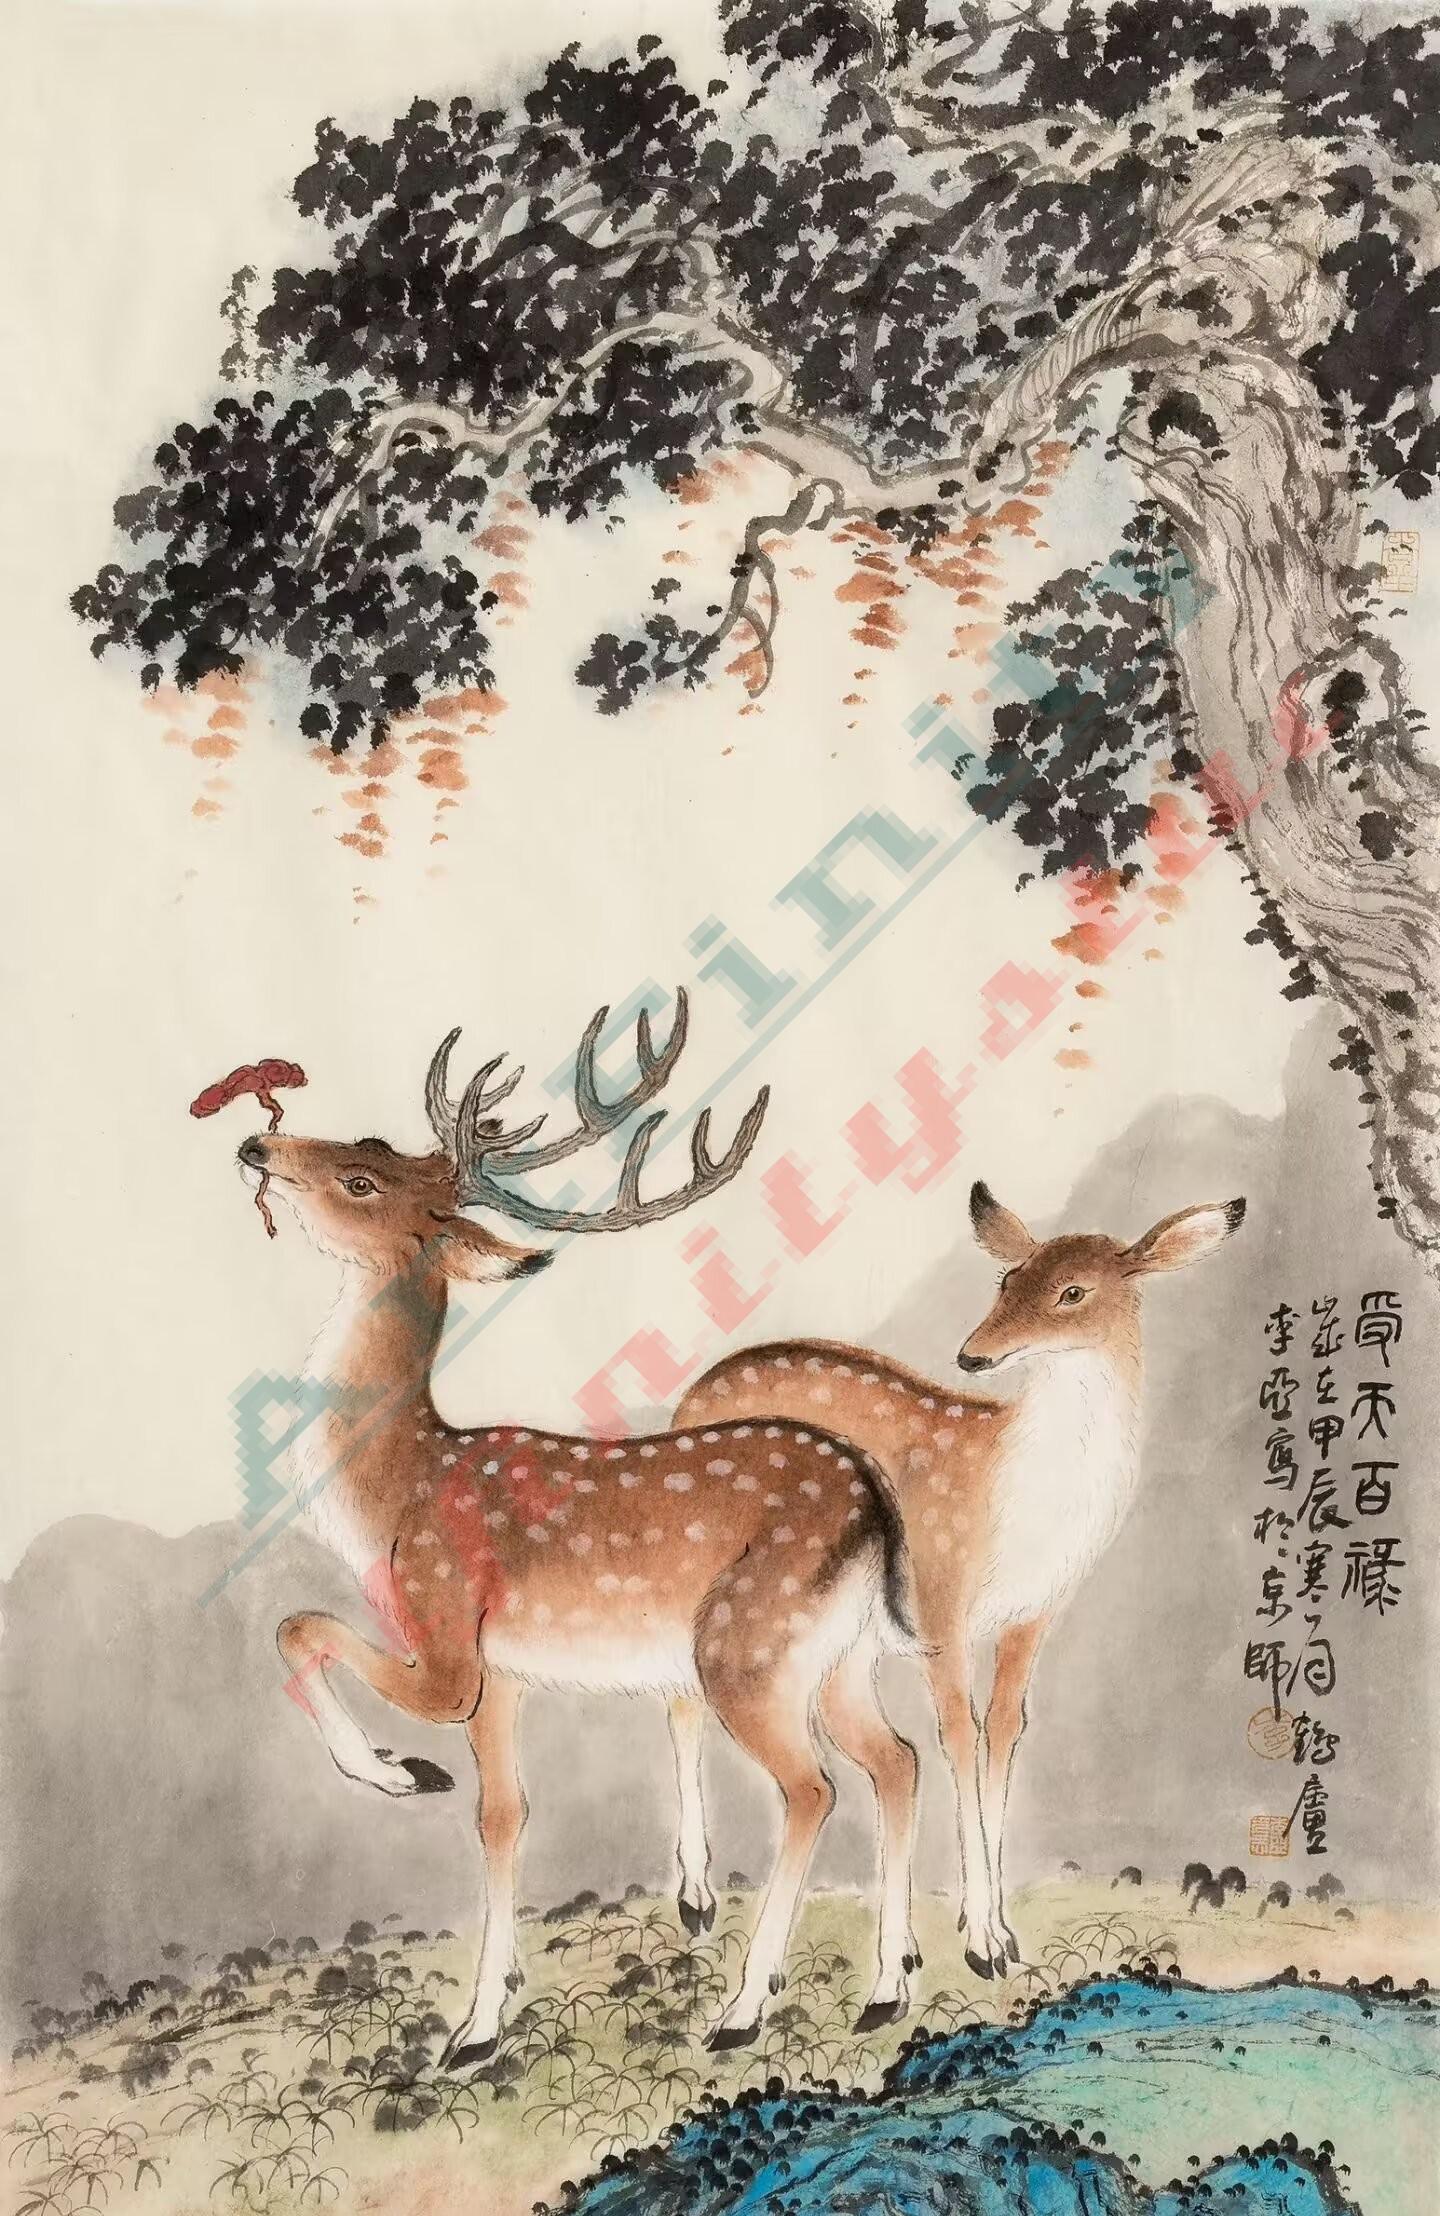 受天百祿
歲在甲辰寒月鶴廬
李亞寫於京師
ArtFinity